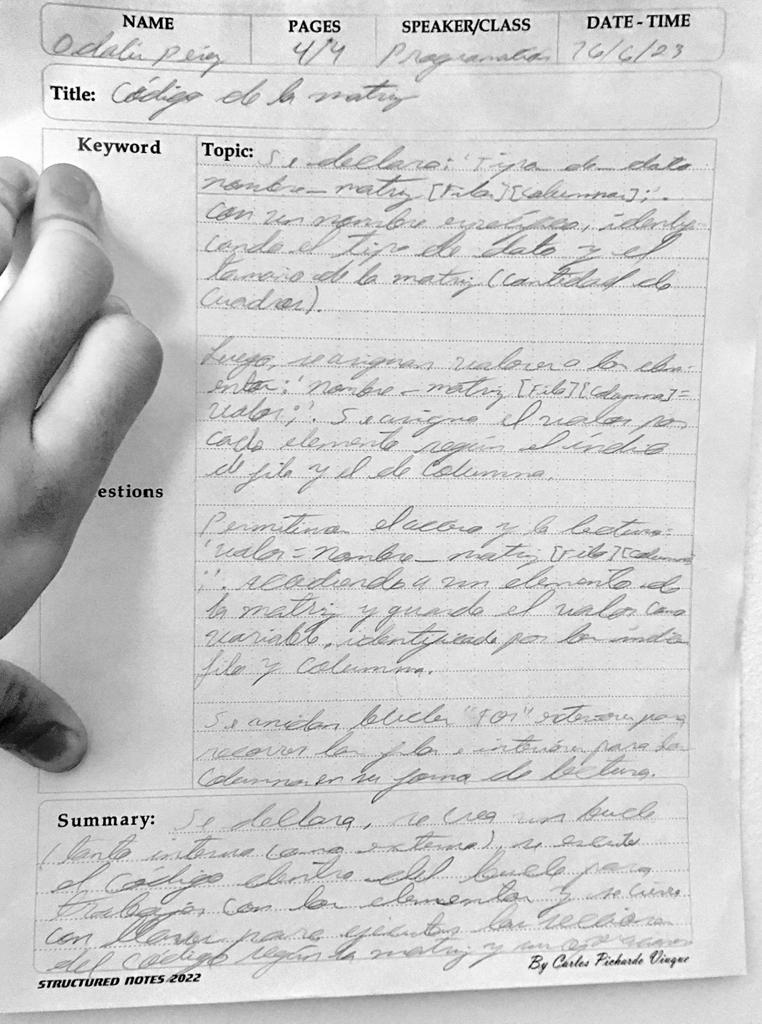 NAME PAGES SPEAKER/CLASS DATE - TIME
Odalis Pérez 4/4 Programation 16/6/23
Title: Código de la matriz
Keyword
Topic: Se declara: 'Tipo de dato
nombre_matriz [Fila][Columna];'.
con un nombre específico, identifi-
cando el tipo de dato y el
tamaño de la matriz (cantidad de
cuadros).
Luego, se asignan valores a los elem-
entos: 'nombre_matriz [Fila][Columna]=
valor;'. Se asigna el valor por
cada elemento según el índice
de fila y el de columna.
estions
Permitimos el acceso y la lectura:
'valor = nombre_matriz [Fila][Columna
;'. accediendo a un elemento de
la matriz y guarda el valor como
variable, identificada por los índice
fila y columna.
Se anidan bucles "for" exteriores para
recorrer las filas e interiores para las
columnas en su forma de lectura.
Summary: Se declara, se crea un bucle
(tanto interna como externa), se escribe
el código dentro del bucle para
trabajar con los elementos y se cierra
con llaves para ejecutar las
del código según la matriz y un
STRUCTURED NOTES 2022
By Carlos Pichardo Viuque